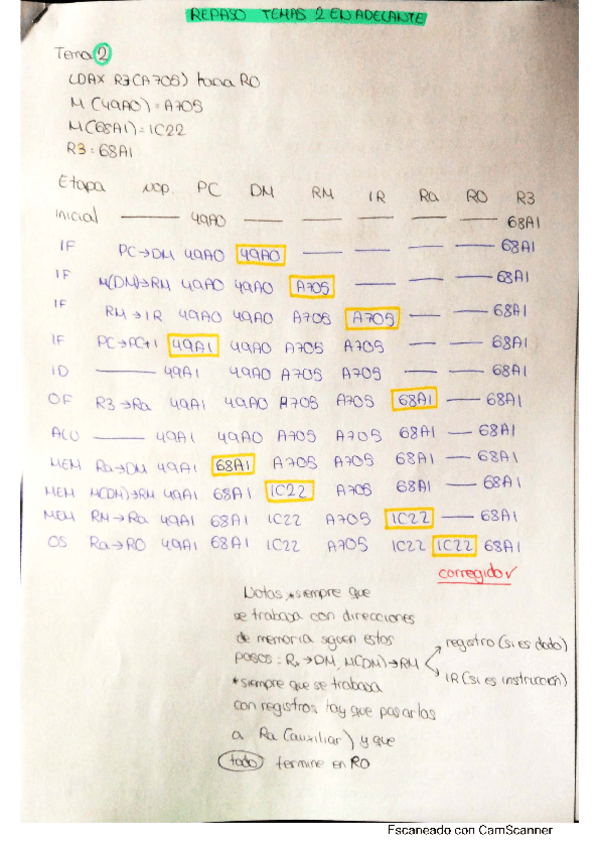 REPASO TEMAS 2 EN ADELANTE
Tema 2
LDAX R3 (A705) hacia R0
M (49A0) = A705
M(68A1) = 1C22
R3 = 68A1
Etapa μop. PC DM RM IR Ra R0 R3
Inicial — 49A0 — — — — — 68A1
IF PC→DM 49A0 49A0 — — — — 68A1
IF M(DM)→RM 49A0 49A0 A705 — — — 68A1
IF RM→IR 49A0 49A0 A705 A705 — — 68A1
IF PC→PC+1 49A1 49A0 A705 A705 — — 68A1
ID — 49A1 49A0 A705 A705 — — 68A1
OF R3→Ra 49A1 49A0 A705 A705 68A1 — 68A1
ALU — 49A1 49A0 A705 A705 68A1 — 68A1
MEM Ra→DM 49A1 68A1 A705 A705 68A1 — 68A1
MEM M(DM)→RM 49A1 68A1 1C22 A705 68A1 — 68A1
MEM RM→Ra 49A1 68A1 1C22 A705 1C22 — 68A1
OS Ra→R0 49A1 68A1 1C22 A705 1C22 1C22 68A1
corregido✓
Notas *siempre que
se trabaja con direcciones
de memoria siguen estos
pasos: Rx→DM, M(DM)→RM
registro (si es dato)
IR (si es instrucción)
*siempre que se trabaja
con registros hay que pasarlas
a Ra (auxiliar) y que
todo termine en R0
Escaneado con CamScanner